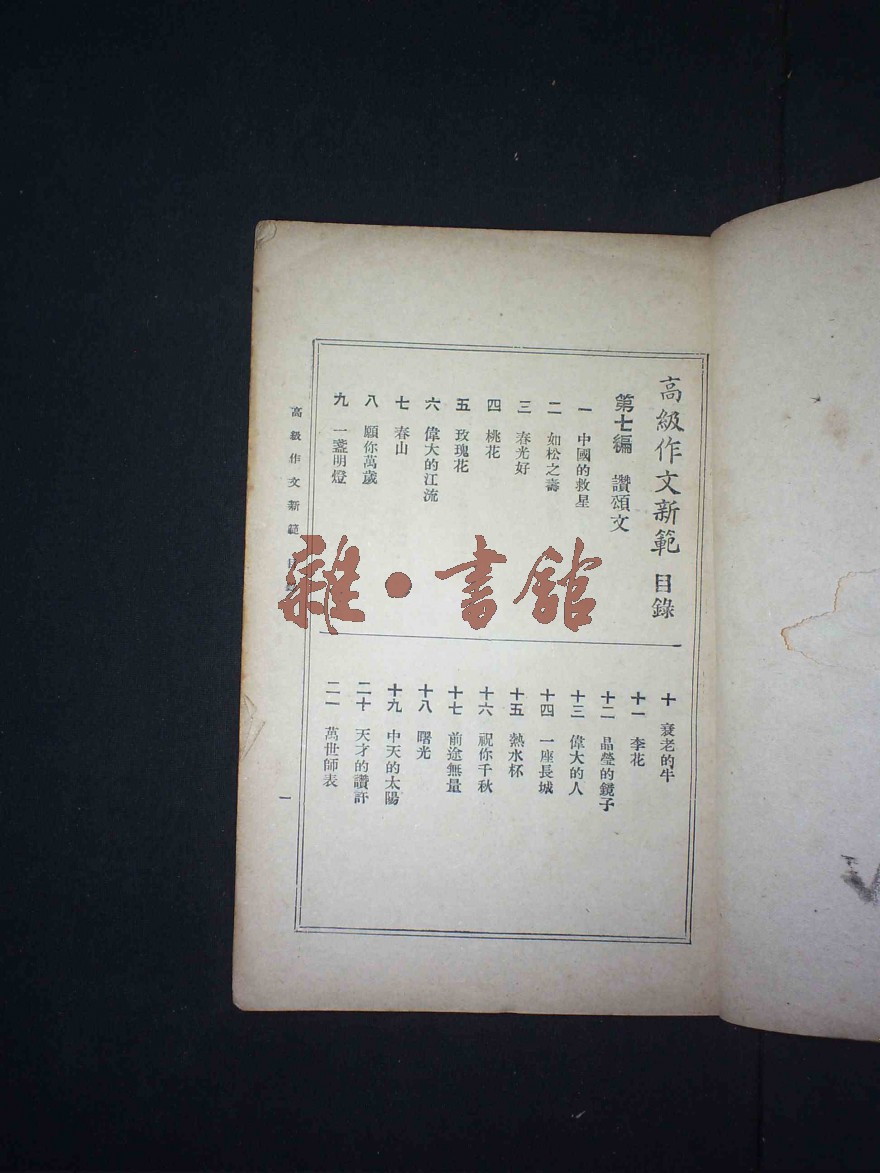 高級作文新範 目錄
第七編 讚頌文
一 中國的救星
二 如松之壽
三 春光好
四 桃花
五 玫瑰花
六 偉大的江流
七 春山
八 願你萬歲
九 一盞明燈
十 衰老的牛
十一 李花
十二 晶瑩的鏡子
十三 偉大的人
十四 一座長城
十五 熱水杯
十六 祝你千秋
十七 前途無量
十八 曙光
十九 中天的太陽
二十 天才的讚許
二一 萬世師表
高級作文新範 目
一
雜·書館